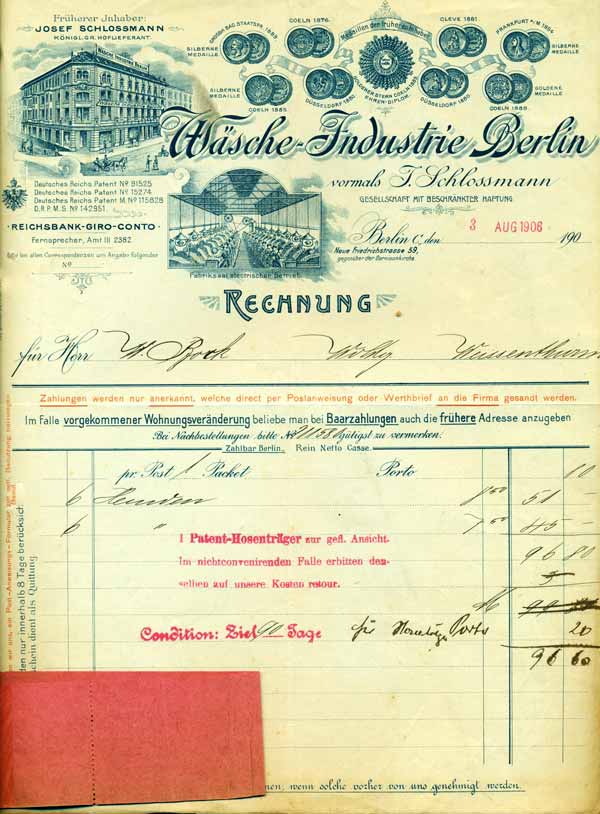 Früherer Inhaber:
JOSEF SCHLOSSMANN
KÖNIGL. GR. HOFLIEFERANT.
GROSH. BAD. STAATSPR. 1883.
COELN 1876.
Medaillen des früheren Inhabers
CLEVE 1881.
FRANKFURT A/M 1864
SILBERNE MEDAILLE
SILBERNE MEDAILLE
SILBERNE MEDAILLE
GOLDENE MEDAILLE
COELN 1885.
DÜSSELDORF 1880.
GOLDENER STERN COELN 1885.
EHREN-DIPLOM.
DÜSSELDORF 1880.
COELN 1888.
Wäsche-Industrie Berlin
vormals J. Schlossmann
GESELLSCHAFT MIT BESCHRÄNKTER HAFTUNG.
Deutsches Reichs Patent No 91525
Deutsches Reichs Patent No 15274
Deutsches Reichs Patent M. No 115828
D.R.P.M.S. No 142951.
REICHSBANK-GIRO-CONTO
Fernsprecher, Amt III 2382.
Bitte bei allen Correspondenzen um Angabe folgender
No
Fabriksaal electrischer Betrieb.
3 AUG 1906
Berlin C, den 190
Neue Friedrichstrasse 59,
gegenüber der Garnisonkirche.
RECHNUNG
für Herr W. Bock Weissenthurm
Zahlungen werden nur anerkannt, welche direct per Postanweisung oder Werthbrief an die Firma gesandt werden.
Im Falle vorgekommener Wohnungsveränderung beliebe man bei Baarzahlungen auch die frühere Adresse anzugeben
Bei Nachbestellungen bitte No gütigst zu vermerken.
Zahlbar Berlin. Rein Netto Casse.
pr. Post 1 Packet Porto 80
6 Hemden 8.50 51 –
6 " 7.50 45 –
96 80
1 Patent-Hosenträger zur gefl. Ansicht.
Im nichtconvenirenden Falle erbitten den-
selben auf unsere Kosten retour.
Condition: Ziel 90 Tage
für Porto 20
96 60
den nur innerhalb 8 Tage berücksich
schein dient als Quittung
nen, wenn solche vorher von uns genehmigt werden.